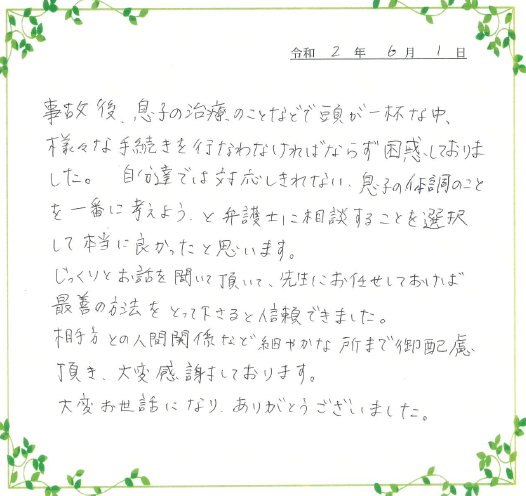 令和 2 年 6 月 1 日
事故後、息子の治療のことなどで頭が一杯な中、
様々な手続きを行なわなければならず困惑しておりま
した。 自分達では対応しきれない、息子の体調のこと
を一番に考えよう、と弁護士に相談することを選択
して本当に良かったと思います。
じっくりとお話を聞いて頂いて、先生にお任せしておけば
最善の方法をとって下さると信頼できました。
相手方との人間関係など細やかな所まで御配慮
頂き、大変感謝しております。
大変お世話になり、ありがとうございました。